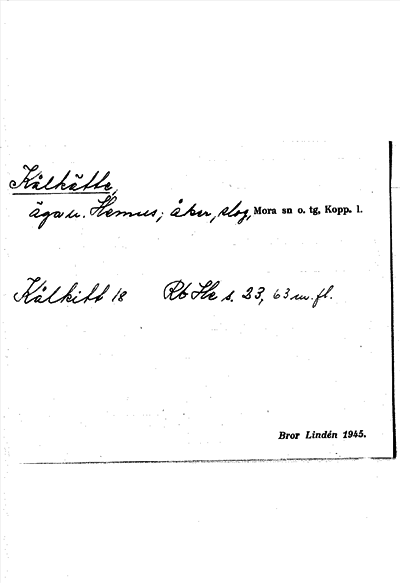 Kålkätte,
ägor u. Hemus; åker, slog, Mora sn o. tg, Kopp. l.
Kålkitt 18 Rb He s. 23, 63 m. fl.
Bror Lindén 1945.